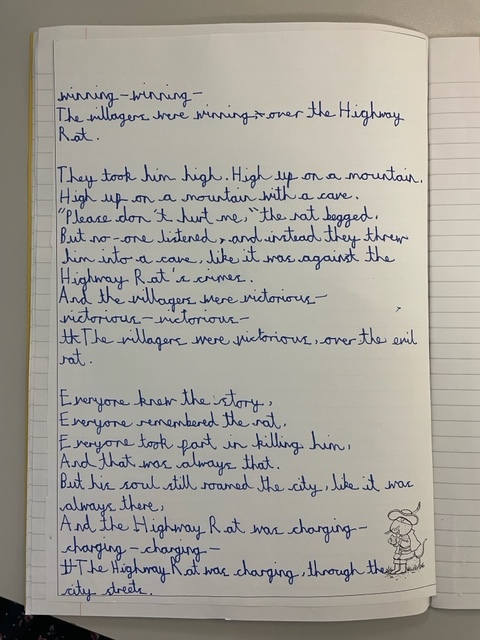 winning-winning-
The villagers were winning, over the Highway
Rat.
They took him high. High up on a mountain.
High up on a mountain with a cave.
"Please don't hurt me," the rat begged.
But no-one listened, and instead they threw
him into a cave, like it was against the
Highway Rat's crimes.
And the villagers were victorious-
victorious-victorious-
The villagers were victorious, over the evil
rat.
Everyone knew the story,
Everyone remembered the rat.
Everyone took part in killing him,
And that was always that.
But his soul still roamed the city, like it was
always there,
And the Highway Rat was charging-
charging-charging-
The Highway Rat was charging, through the
city streets.